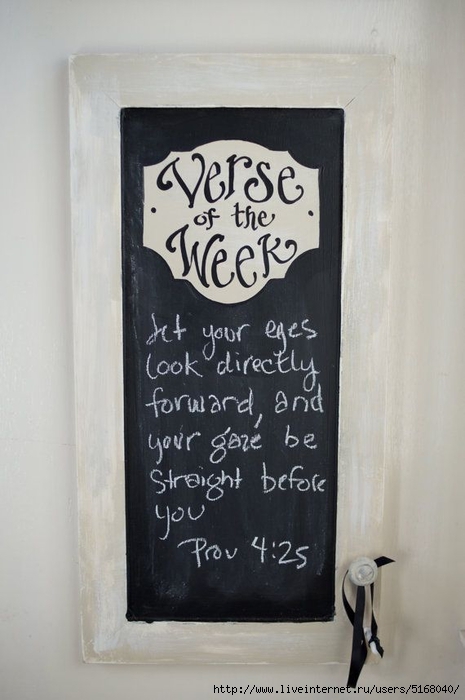 Verse
of the
Week
Let your eyes
look directly
forward, and
your gaze be
straight before
you
Prov 4:25
http://www.liveinternet.ru/users/5168040/